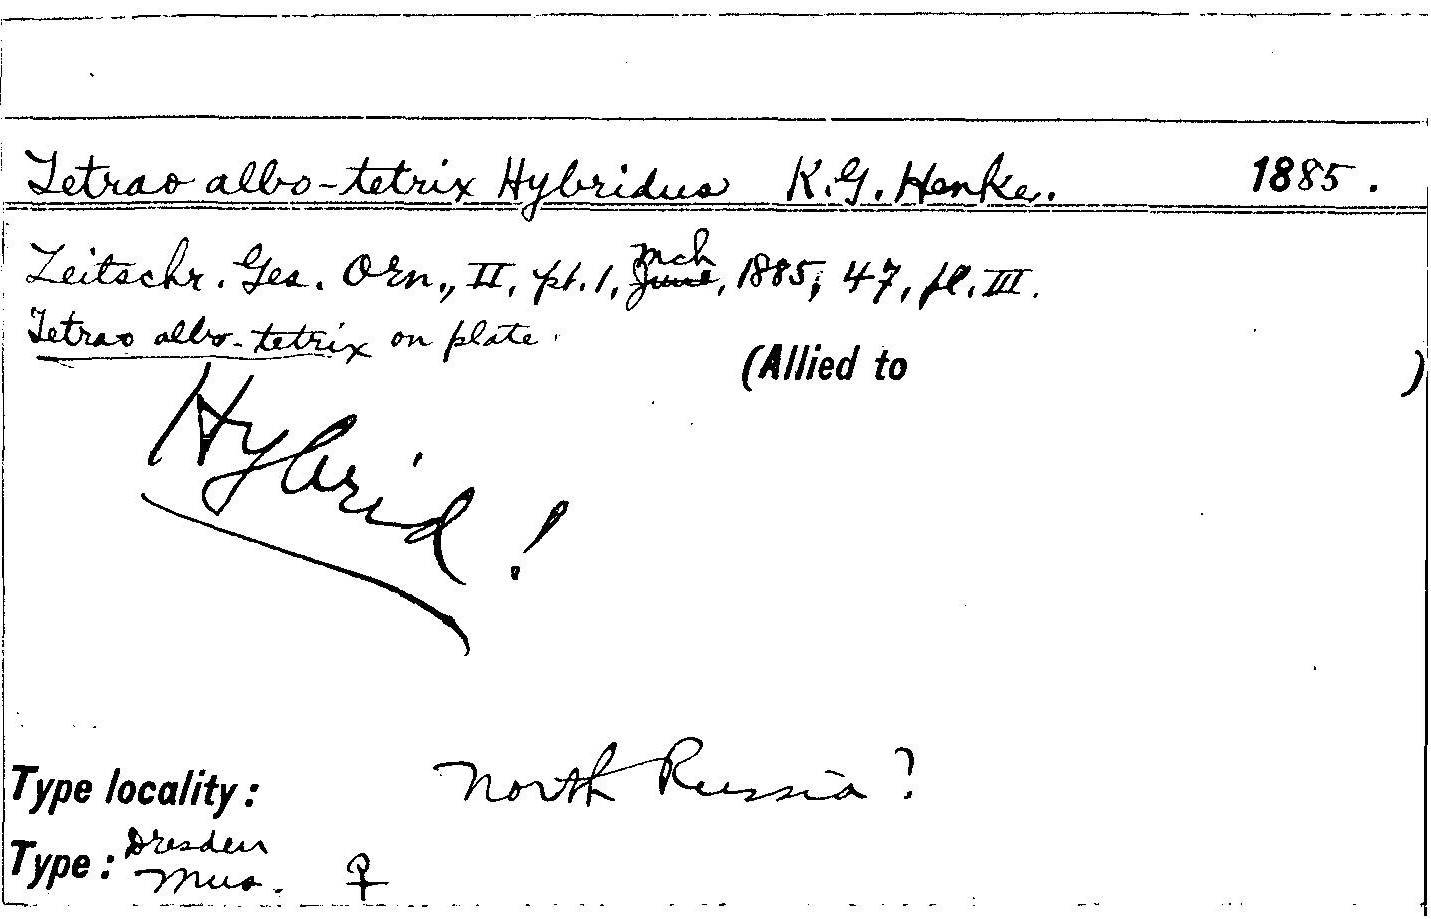 Tetrao albo-tetrix Hybridus K.G. Henke. 1885.
Zeitschr. Ges. Orn., II, pt. 1, June, Mch, 1885, 47, pl. III.
Tetrao albo-tetrix on plate.
(Allied to )
Hybrid!
Type locality: North Russia?
Type: Dresden
Mus. ♀